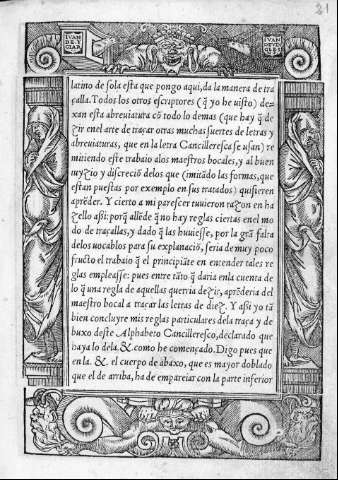 21
IVAN
DE Y
CIAR
IVAN
latino de sola esta que pongo aqui, da la manera de tra
çalla. Todos los otros escriptores (q̃ yo he uisto) de-
xan esta abreuiatura cõ todo lo demas (que hay q̃ de
zir en el arte de traçar otras muchas suertes de letras y
abreuiaturas, que en la letra Cancilleresca se usan) re
mitiendo este trabaio alos maestros bocales, y al buen
iuyzio y discreciõ delos que (imitãdo las formas, que
estan puestas por exemplo en sus tratados) quisieren
aprẽder. Y cierto a mi parescer tuuieron razon en ha
zello assi: porq̃ allẽde q̃ no hay reglas ciertas en el mo
do de traçallas, y dado q̃ las huuiesse, por la grã falta
delos uocablos para su explanaciõ, seria de muy poco
fructo el trabaio q̃ el principiãte en entender tales re
glas empleasse: pues entre tãto q̃ daria enla cuenta de
lo q̃ una regla de aquellas querria dezir, aprẽderia del
maestro bocal a traçar las letras de diez. Y assi yo tã
bien concluyre mis reglas particulares dela traça y de
buxo deste Alphabeto Cancilleresco, declarado que
haya lo dela. & como he començado. Digo pues que
en la. & el cuerpo de abaxo, que es mayor doblado
que el de arriba, ha de empareiar con la parte inferior